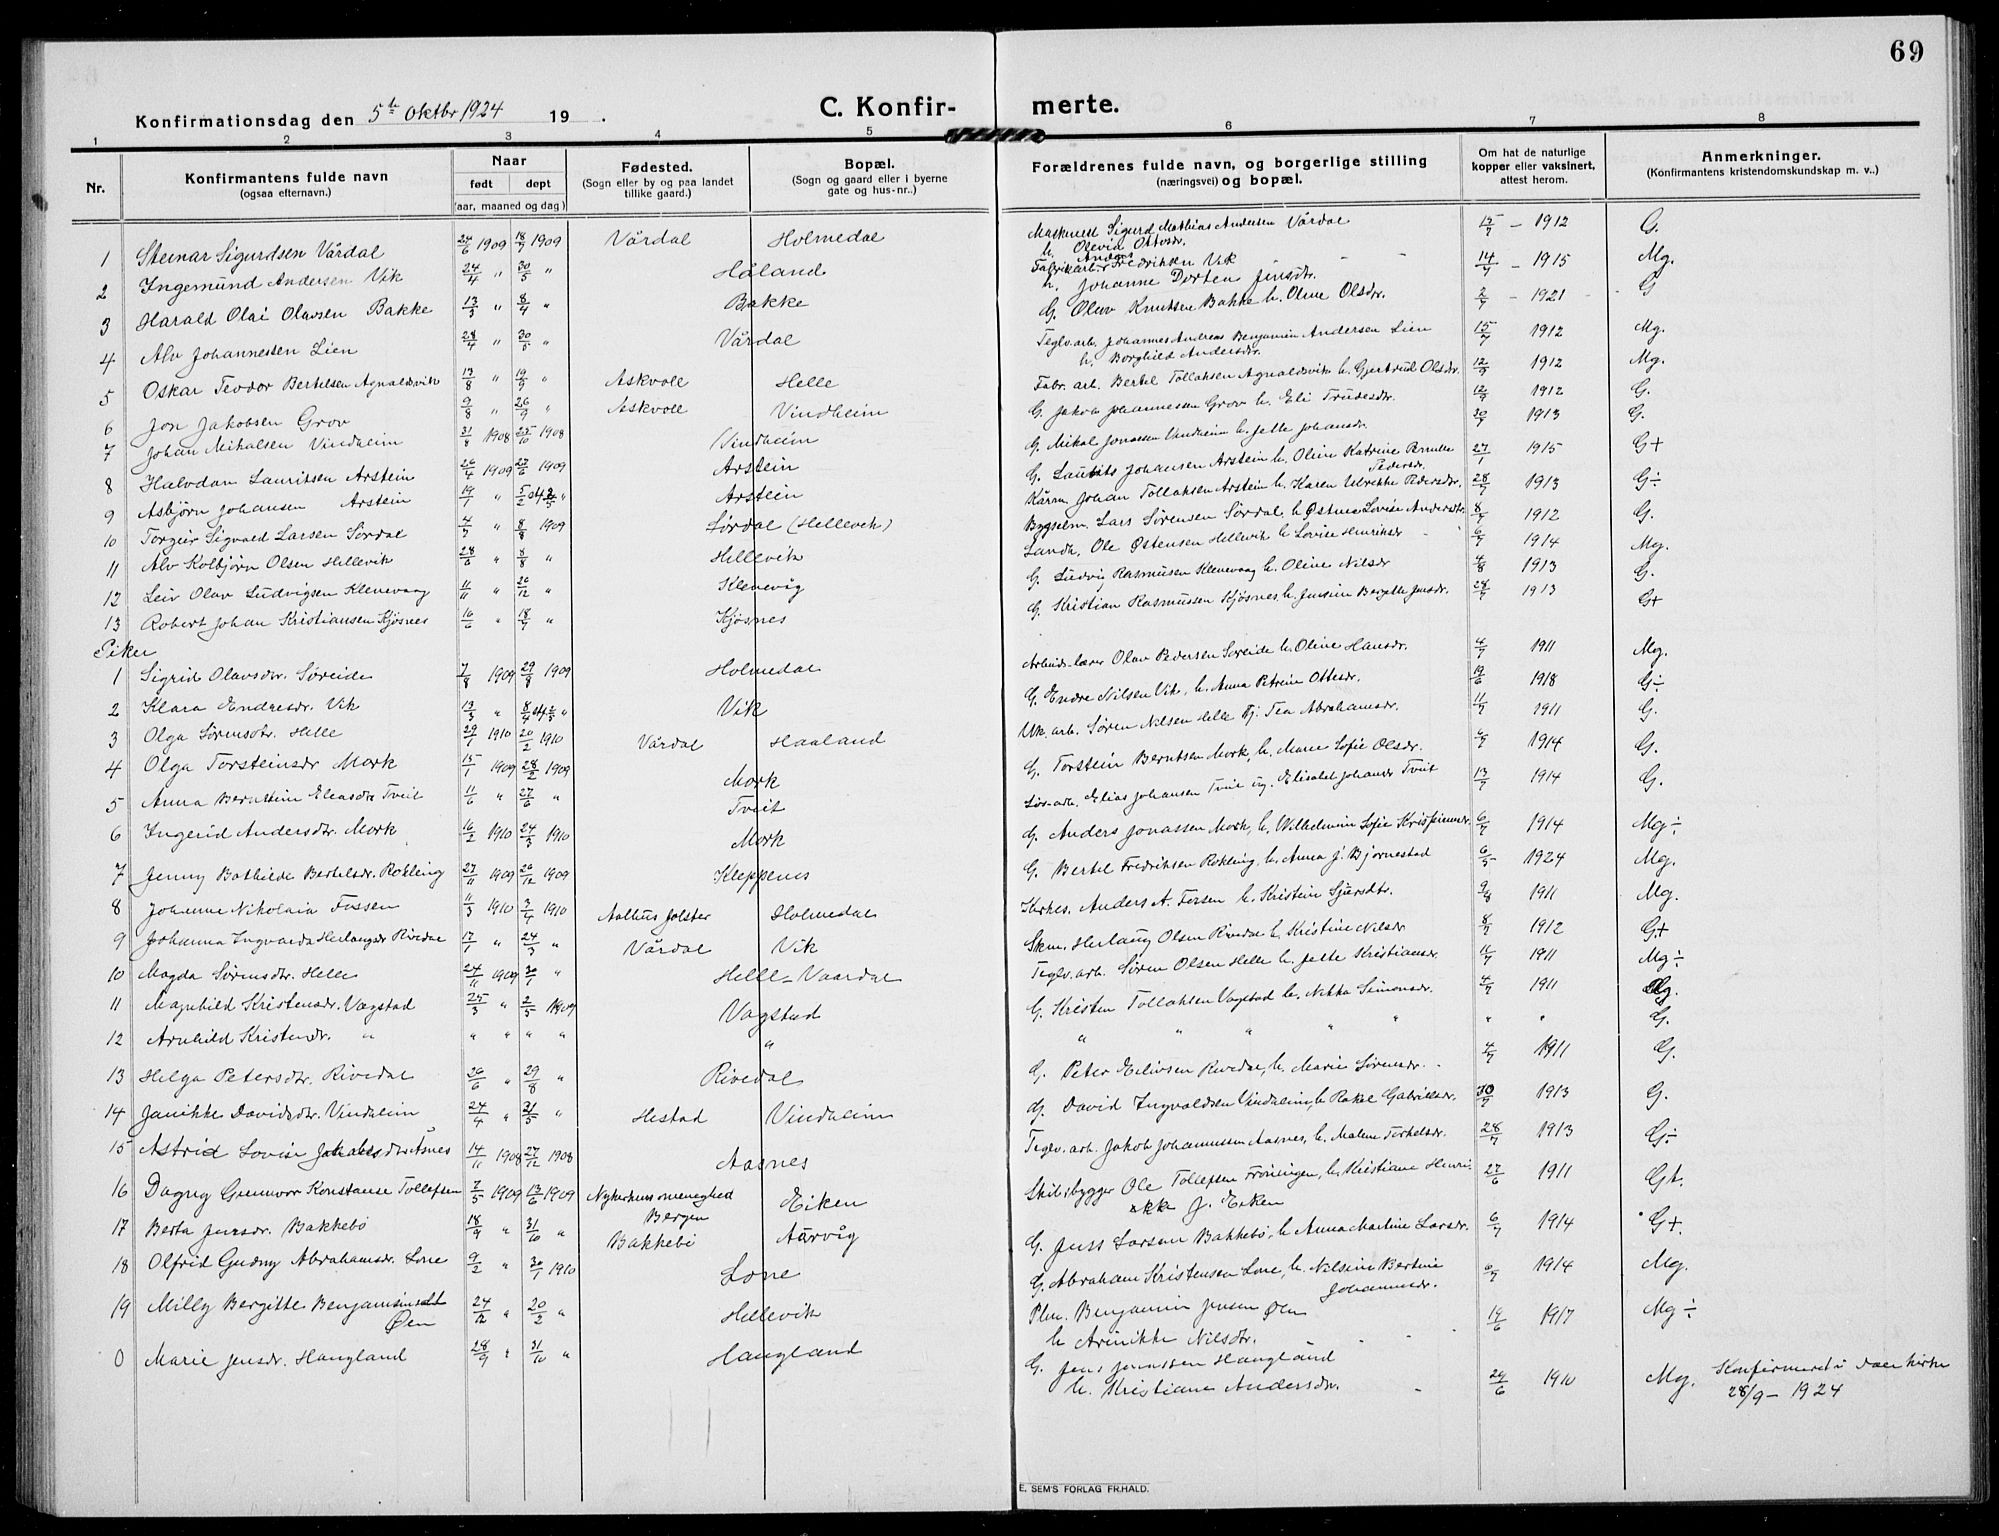 69
Konfirmationsdag den 5te Oktbr 1924 19 .
C. Konfirmerte.
1 2 3 4 5 6 7 8
Nr. Konfirmantens fulde navn (ogsaa efternavn.) Naar født døpt (aar, maaned og dag) Fødested. (Sogn eller by og paa landet tillike gaard.) Bopæl. (Sogn og gaard eller i byerne gate og hus-nr..) Forældrenes fulde navn, og borgerlige stilling (næringsvei) og bopæl. Om hat de naturlige kopper eller vaksinert, attest herom. Anmerkninger. (Konfirmantens kristendomskundskap m. v..)
1 Steinar Sigurdsen Vårdal 24/6 1909 18/7 1909 Vårdal Holmedal Maskinist Sigurd Mathias Andersen Vårdal h. Olevia Ottosdr. 15/7 - 1912 G.
2 Ingemund Andersen Vik 24/4 " 30/5 " Håland Fabrikarb. Anders Fredriksen Vik h. Johanne Dorten Jensdr. 14/7 - 1915 Mg.
3 Harald Olai Olavsen Bakke 13/3 " 8/4 " Bakke G. Olav Knutsen Bakke h. Oline Olsdr. 2/7 - 1921 G
4 Alv Johannessen Lien 28/4 " 30/5 " Vårdal Teglv.arb. Johannes Andreas Benjamin Andersen Lien h. Borghild Andersdr. 15/7 1912 Mg.
5 Oskar Teodor Bertelsen Agnaldsvik 13/8 " 19/9 " Askvoll Helle Fabr. arb. Bertel Tollaksen Agnaldsvik h. Gjertrud Olsdr. 12/7 1912 Mg.
6 Jon Jakobsen Grov 9/8 " 26/9 " Askvoll Vindheim G. Jakob Johannessen Grov h. Eli Trudesdr. 12/7 1912 G.
7 Johan Mikalsen Vindheim 31/8 1908 25/10 1908 Vindheim G. Mikal Jonassen Vindheim h. Jette Johansdr. 30/7 1913 G.
8 Halvdan Lauritsen Arstein 26/4 1909 27/6 1909 Arstein G. Laurits Johansen Arstein h. Oline Katrine Pedersdr. 27/1 1915 G+
9 Asbjørn Johansen Arstein 19/1 " 5/2 " Arstein Kårm. Johan Tollaksen Arstein h. Karen Ulrikke Pedersdr. 28/7 1913 G÷
10 Torgeir Sigvald Larsen Sørdal 4/7 " 8/8 1909 Sørdal (Hellevik) Bygselm. Lars Sørensen Sørdal, h. Østine Lovise Andersdr. 8/7 1912 G.
11 Alv Kolbjørn Olsen Hellevik 28/6 " 8/8 " Hellevik Landh. Ole Østensen Hellevik h. Lovise Henriksdr 6/7 1914 Mg.
12 Leiv Olav Ludvigsen Klenevaag 11/11 " 26/12 " Klenevåg G. Ludvig Rasmusen Klenevaag h. Oline Nilsdr 4/8 1913 G.
13 Robert Johan Kristiansen Kjøsnes 16/6 " 18/7 " Kjøsnes G. Kristian Rasmussen Kjøsnes, h. Jensine Bergitte Jensdr. 28/7 1913 G+
Piker
1 Sigrid Olavsdtr. Søreide 7/8 1909 29/8 1909 Holmedal Arbeids-lærer Olav Pedersen Søreide h. Oline Hansdr. 4/7 1911 Mg.
2 Klara Endresdr. Vik 13/3 " 8/4 " Vik G. Endre Nilsen Vik, h. Anna Petrine Ottesdr. 19/6 1918 G÷
3 Olga Sørensdtr. Helle 29/1 1910 20/2 1910 Vårdal Haaland Uk. arb. Søren Nilsen Helle Tj. Tea Abrahamsdr. 11/7 1911 G.
4 Olga Torsteinsdr Mork 15/1 1909 28/2 1909 Mork G. Torstein Berntsen Mork, h. Marie Sofie Olsdr. 4/7 1914 G.
5 Anna Berntine Eliasdr Tveit 11/6 " 27/6 " Tveit Løs.arb. Elias Johansen Tveit ug. Elisabet Johansdr Tveit 13/7 1914 G.
6 Ingerid Andersdtr. Mork 16/2 1910 24/3 1910 Mork G. Anders Jonassen Mork, h. Wilhelmine Sofie Kristiansdr. 6/7 1914 Mg÷
7 Jenny Bathilde Bertelsdr. Rokling 27/11 1909 26/12 1909 Kleppenes G. Bertel Fredriksen Rokling, h. Anna J. Bjørnestad 6/5 1924 Mg.
8 Johanne Nikolaia Fossen 11/3 1910 3/4 1910 Aalhus Jølster Holmedal Kirkes. Anders A. Forsen h. Kristine Sjursdtr. 9/8 1911 Mg.
9 Johanna Ingvarda Herlaugsdr Rivedal 17/1 " 24/3 " Vårdal Vik Skm. Herlaug Olsen Rivedal h. Kristine Nilsdr 8/7 1912 G+
10 Magda Sørensdtr. Helle 24/11 1909 30/1 " Helle - Vaardal Teglv.arb. Søren Olsen Helle h. Jette Kristiansdr. 11/7 1911 Mg÷
11 Magnhild Kristensdr. Vagstad 25/3 " 2/5 1909 Vagstad G. Kristen Tollaksen Vagstad h. Nikka Simonsdr. 4/7 1911 Mg.
12 Arnhild Kristensdr. " " " " " " " " " " " " " G.
13 Helga Petersdtr. Rivedal 26/6 " 29/8 " Rivedal G. Peter Eilivsen Rivedal, h. Marie Sørensdr. 4/7 1911 G.
14 Janikke Davidsdtr. Vindheim 24/4 " 31/5 " Hestad Vindheim G. David Ingvaldsen Vindheim, h. Rakel Gabrielsdr. 30/7 1913 G.
15 Astrid Lovise Jakobsdtr Åsnes 14/11 1908 27/12 1908 Aasnes Teglv.arb. Jakob Johannussen Aasnes, h. Malene Terkelsdr. 28/7 1913 G÷
16 Dagny Gunnvor Konstanse Tollefsen 7/5 1909 13/6 1909 Nykirkens menighed Bergen Eiken Skibsbygger Ole Tollefsen Frøningen, h. Kristiane Henrikke J. Eiken 27/6 1911 Gt.
17 Berta Jensdr. Bakkebø 18/9 " 31/10 " Bakkebø Aarvåg G. Jens Larsen Bakkebø, h. Anna Martine Larsdr. 6/7 1914 G+.
18 Olfrid Gudny Abrahamsdr. Lone 9/2 " 30/1 1910 Lone G. Abraham Kristensen Lone, h. Nilsine Bertine Johannesdr. 6/7 1914 Mg.
19 Milly Bergitte Benjaminsdtr Øen 24/12 " 20/2 " Hellevik Plm. Benjamin Jensen Øen h. Arinikke Nilsdtr. 19/6 1917 Mg÷
0 Marie Jensdr. Haugland 28/9 " 31/10 " Haugland G. Jens Jenssen Haugland h. Kristiane Andersdr. 24/6 1910 Mg. Konfirmeret i Dale kirke 28/9 - 1924
E. SEM'S FORLAG FR.HALD.